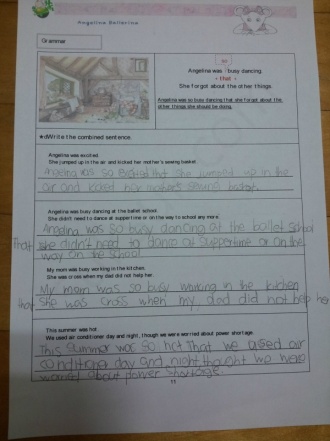 Angelina Ballerina
Grammar
so
Angelina was ↑ busy dancing.
+ that +
She forgot about the other things.
Angelina was so busy dancing that she forgot about the
other things she should be doing.
Write the combined sentence.
Angelina was excited
She jumped up in the air and kicked her mother's sewing basket.
Angelina was so excited that she jumped up in the
air and kicked her mother's sewing basket.
Angelina was busy dancing at the ballet school.
She didn't need to dance at suppertime or on the way to school any more.
Angelina was so busy dancing at the ballet school
That she didn't need to dance at suppertime or on the
way on the school
My mom was busy working in the kitchen.
She was cross when my dad did not help her.
My mom was so busy working in the kitchen
that she was cross when my dad did not help her
This summer was hot
We used air conditioner day and night, though we were worried about power shortage.
This summer was so hot That we used air
conditioner day and night thought we were
worried about Power shortage
11